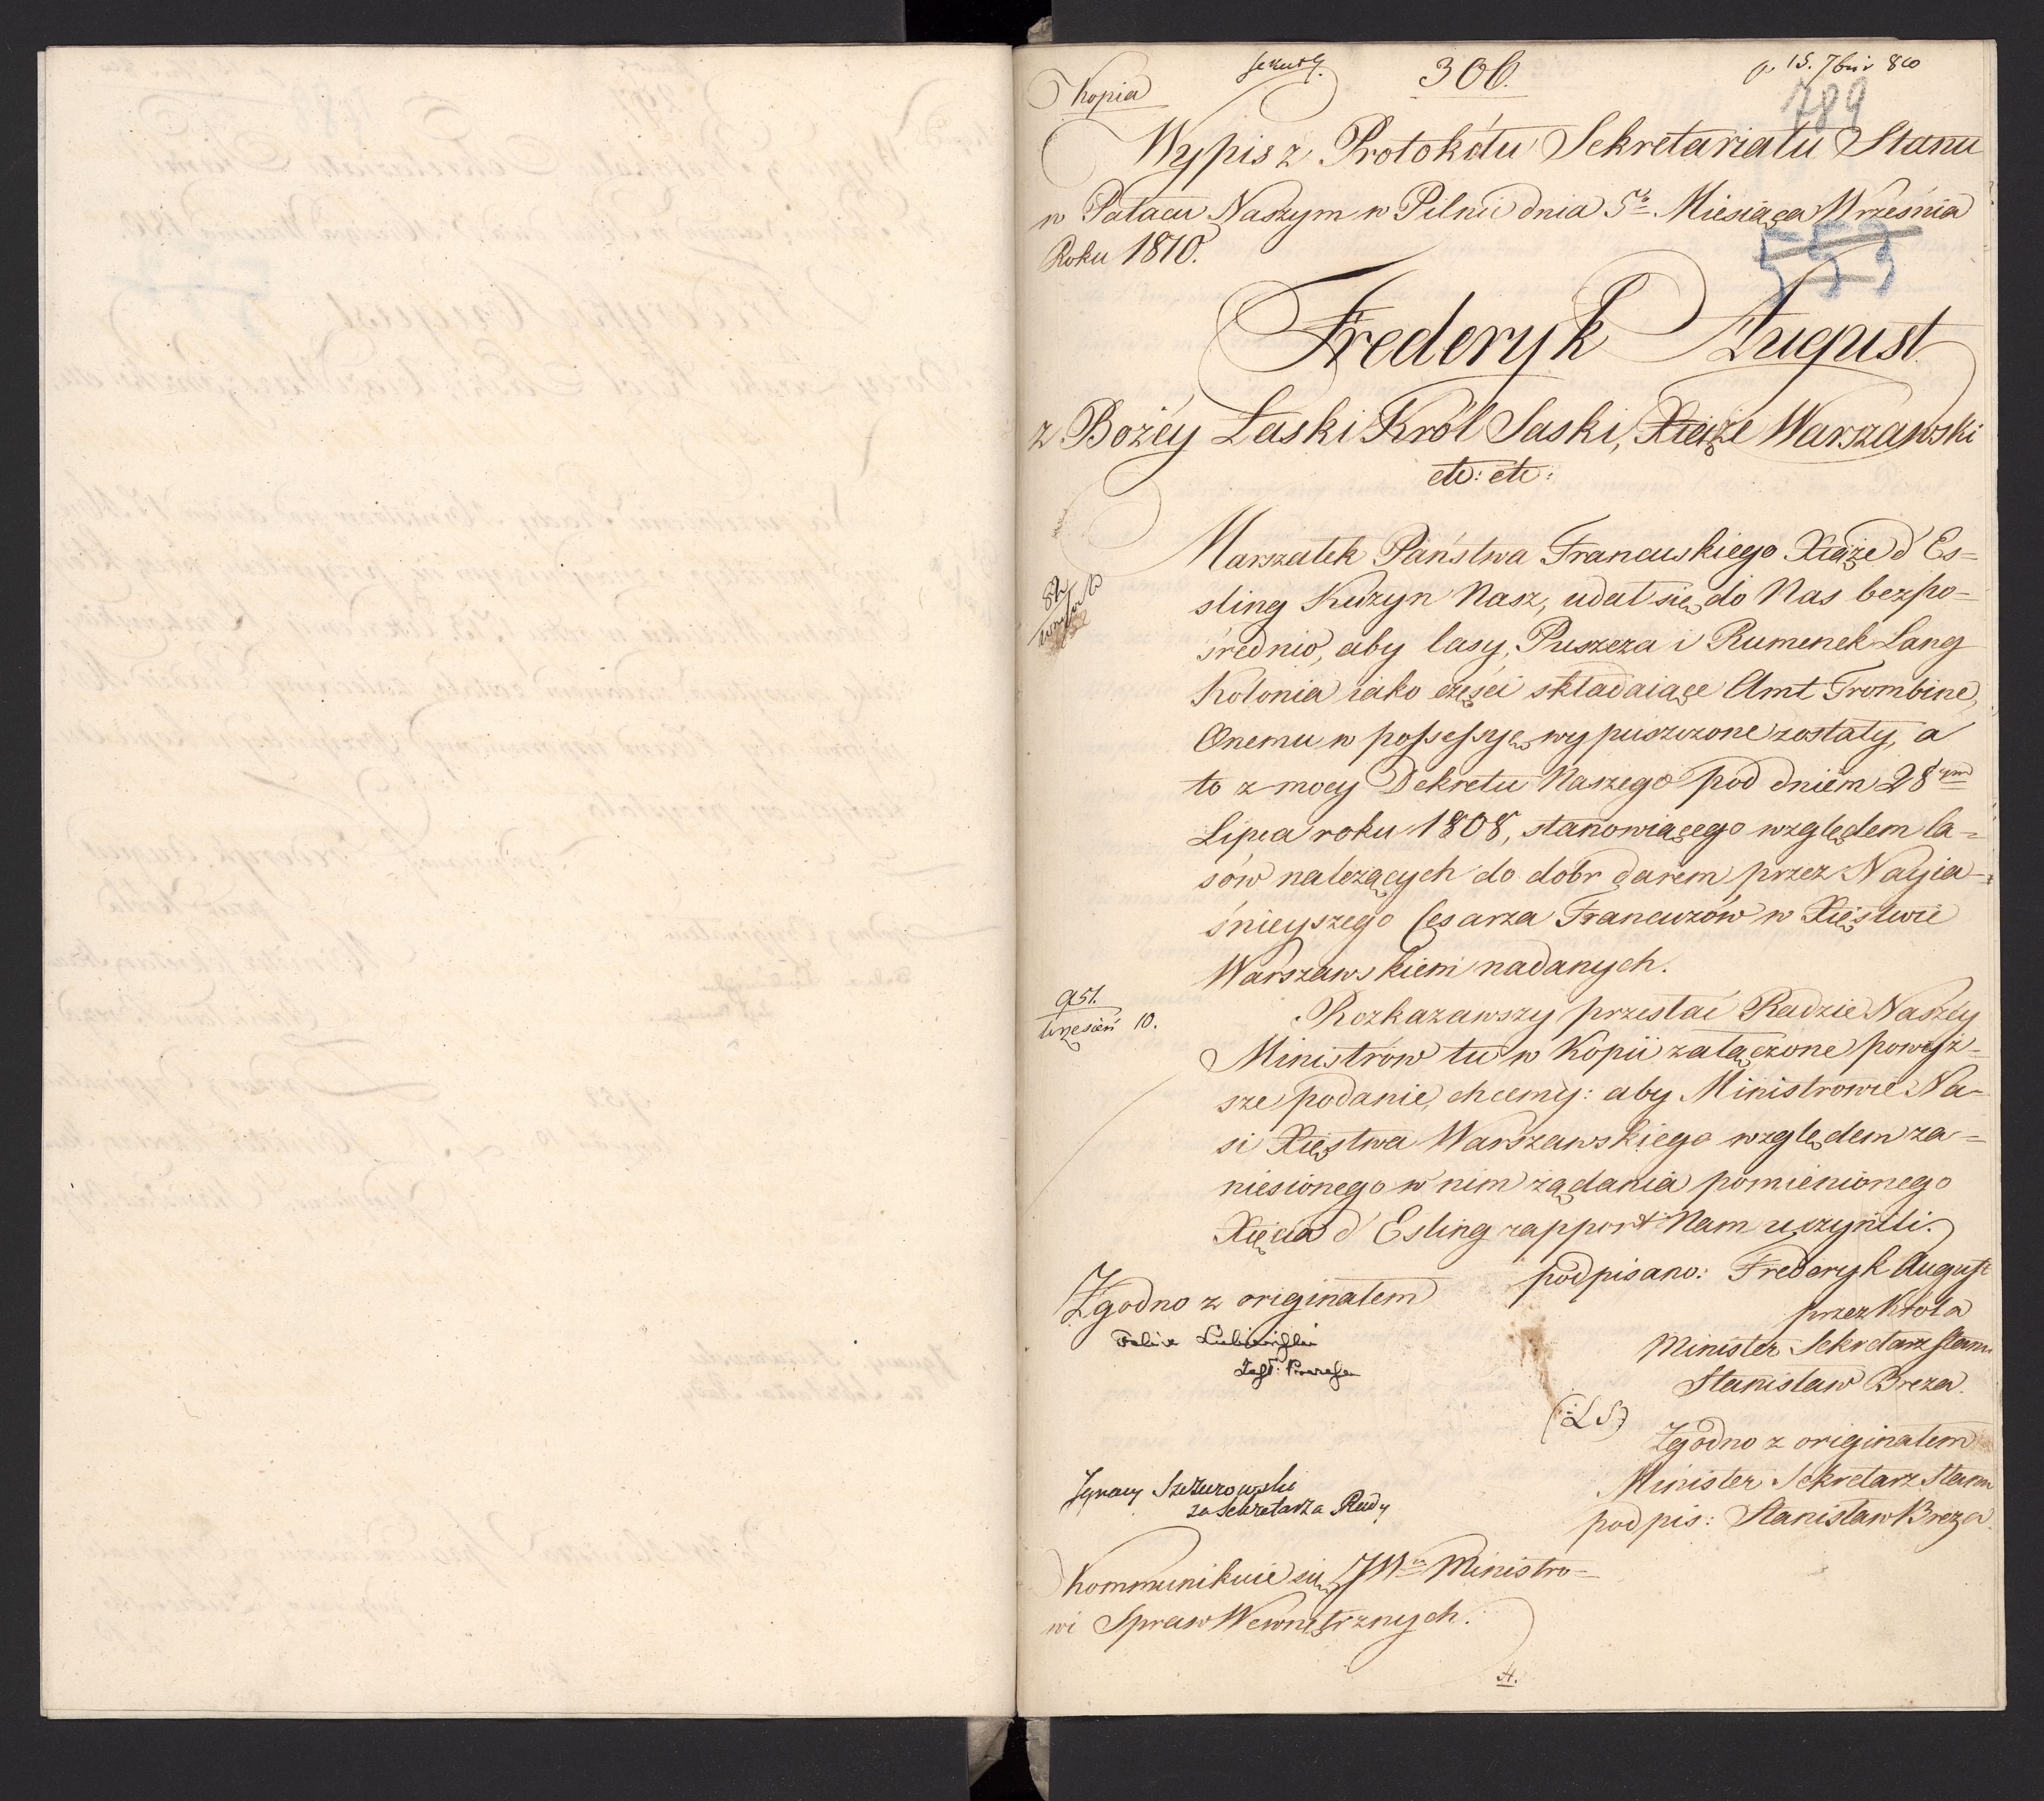 Kopia
306.
789
Wypis z Protokółu Sekretariatu Stanu
w Pałacu Naszym w Pilnic dnia 5º Miesiąca Września
Roku 1810.
553
Frederyk August
z Bożéy Łaski Król Saski, Xiąże Warszawski
etc: etc:
Marszałek Państwa Francuskiego Xiąże d'Es=
sling Kuzyn Nasz, udał się do Nas bezpo=
średnio, aby lasy, Puszcza i Rumenek Lang
Kolonia iako części składaiące Amt Trombine,
Onemu w possessyę wypuszczone zostały, a
to z mocy Dekretu Naszego pod dniem 28ym
Lipca roku 1808, stanowiącego względem la=
sów należących do dobr darem przez Nayia=
śnieyszego Cesarza Francuzów w Xięstwie
Warszawskiem nadanych.
951.
Wrzesień 10.
Rozkazawszy przesłać Radzie Naszéy
Ministrów tu w Kopii załączone powyż=
sze podanie, chcemy: aby Ministrowie Na=
si Xięstwa Warszawskiego względem za=
niesionego w nim żądania pomienionego
Xięcia d'Esling rapport Nam uczynili.
podpisano: Frederyk August
przez Króla
Minister Sekretarz Stanu
Stanisław Breza.
Zgodno z originałem
(: L S :)
Zgodno z originałem
Minister Sekretarz Stanu
podpis: Stanisław Breza.
Ignacy Szczurowski
za Sekretarza Rady
Kommunikuie się JWu Ministro=
wi Spraw Wewnętrznych.